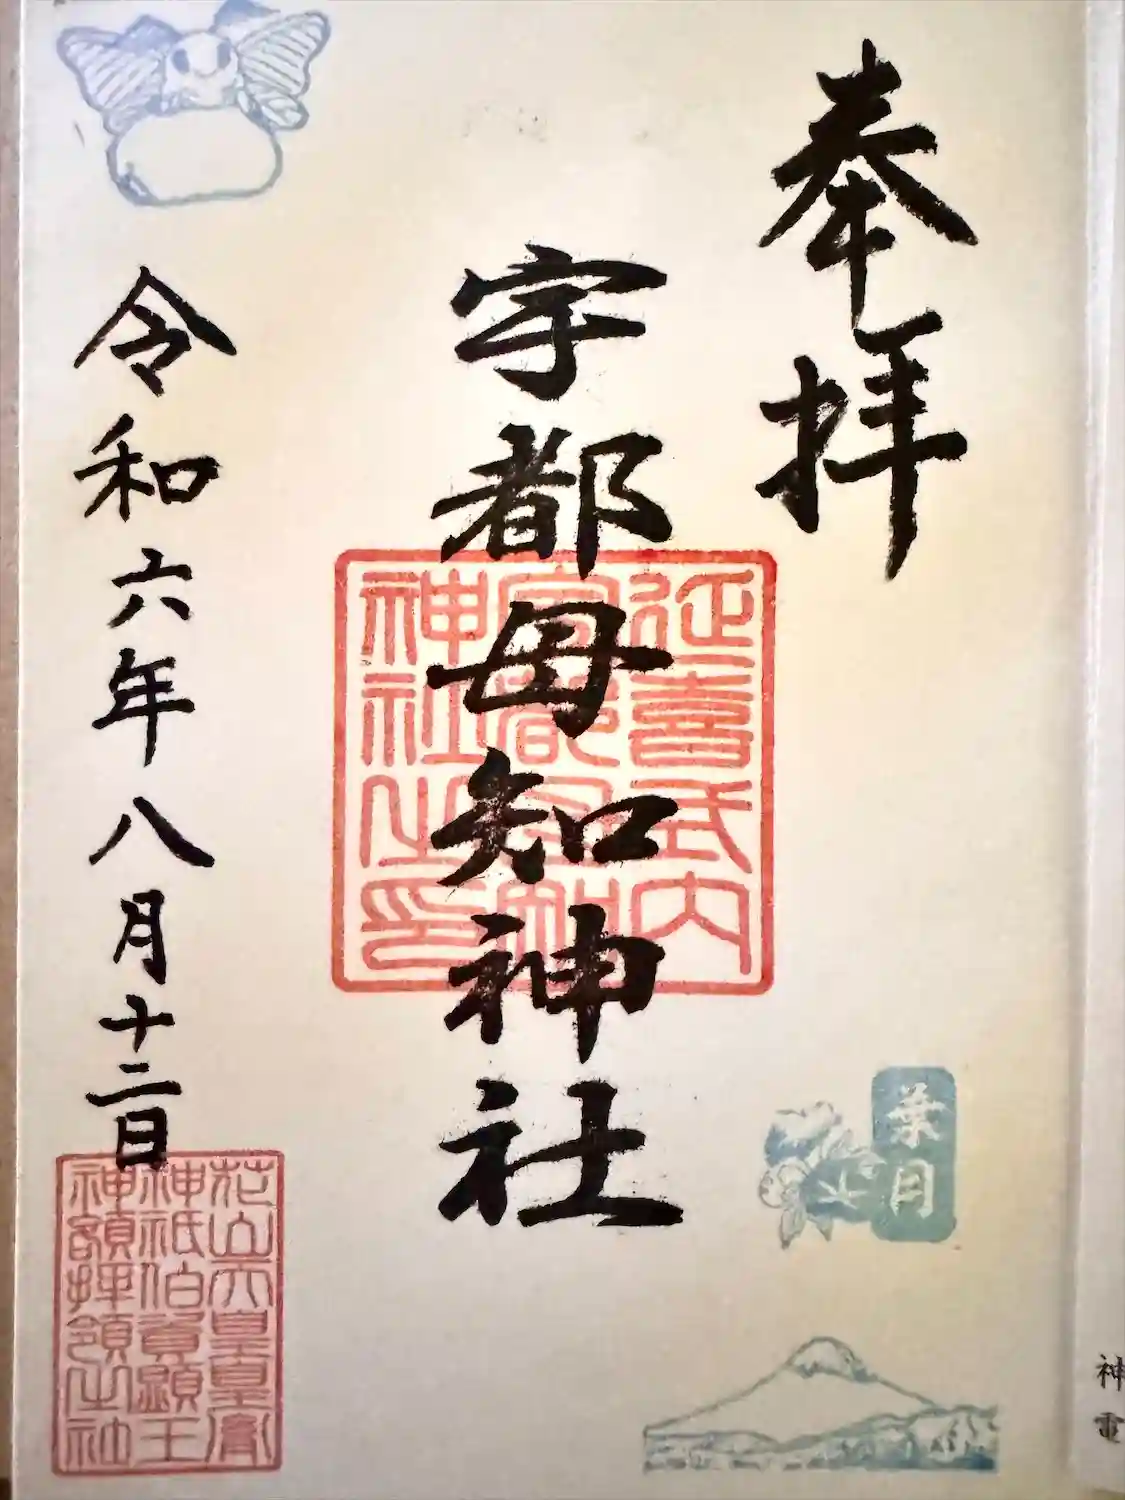 奉拝
宇都母知神社
令和六年八月十二日
延喜式内
宇都母知
神社之印
葉月
花山天皇皇裔
神祇伯資顕王
神額拝領之社
神
電